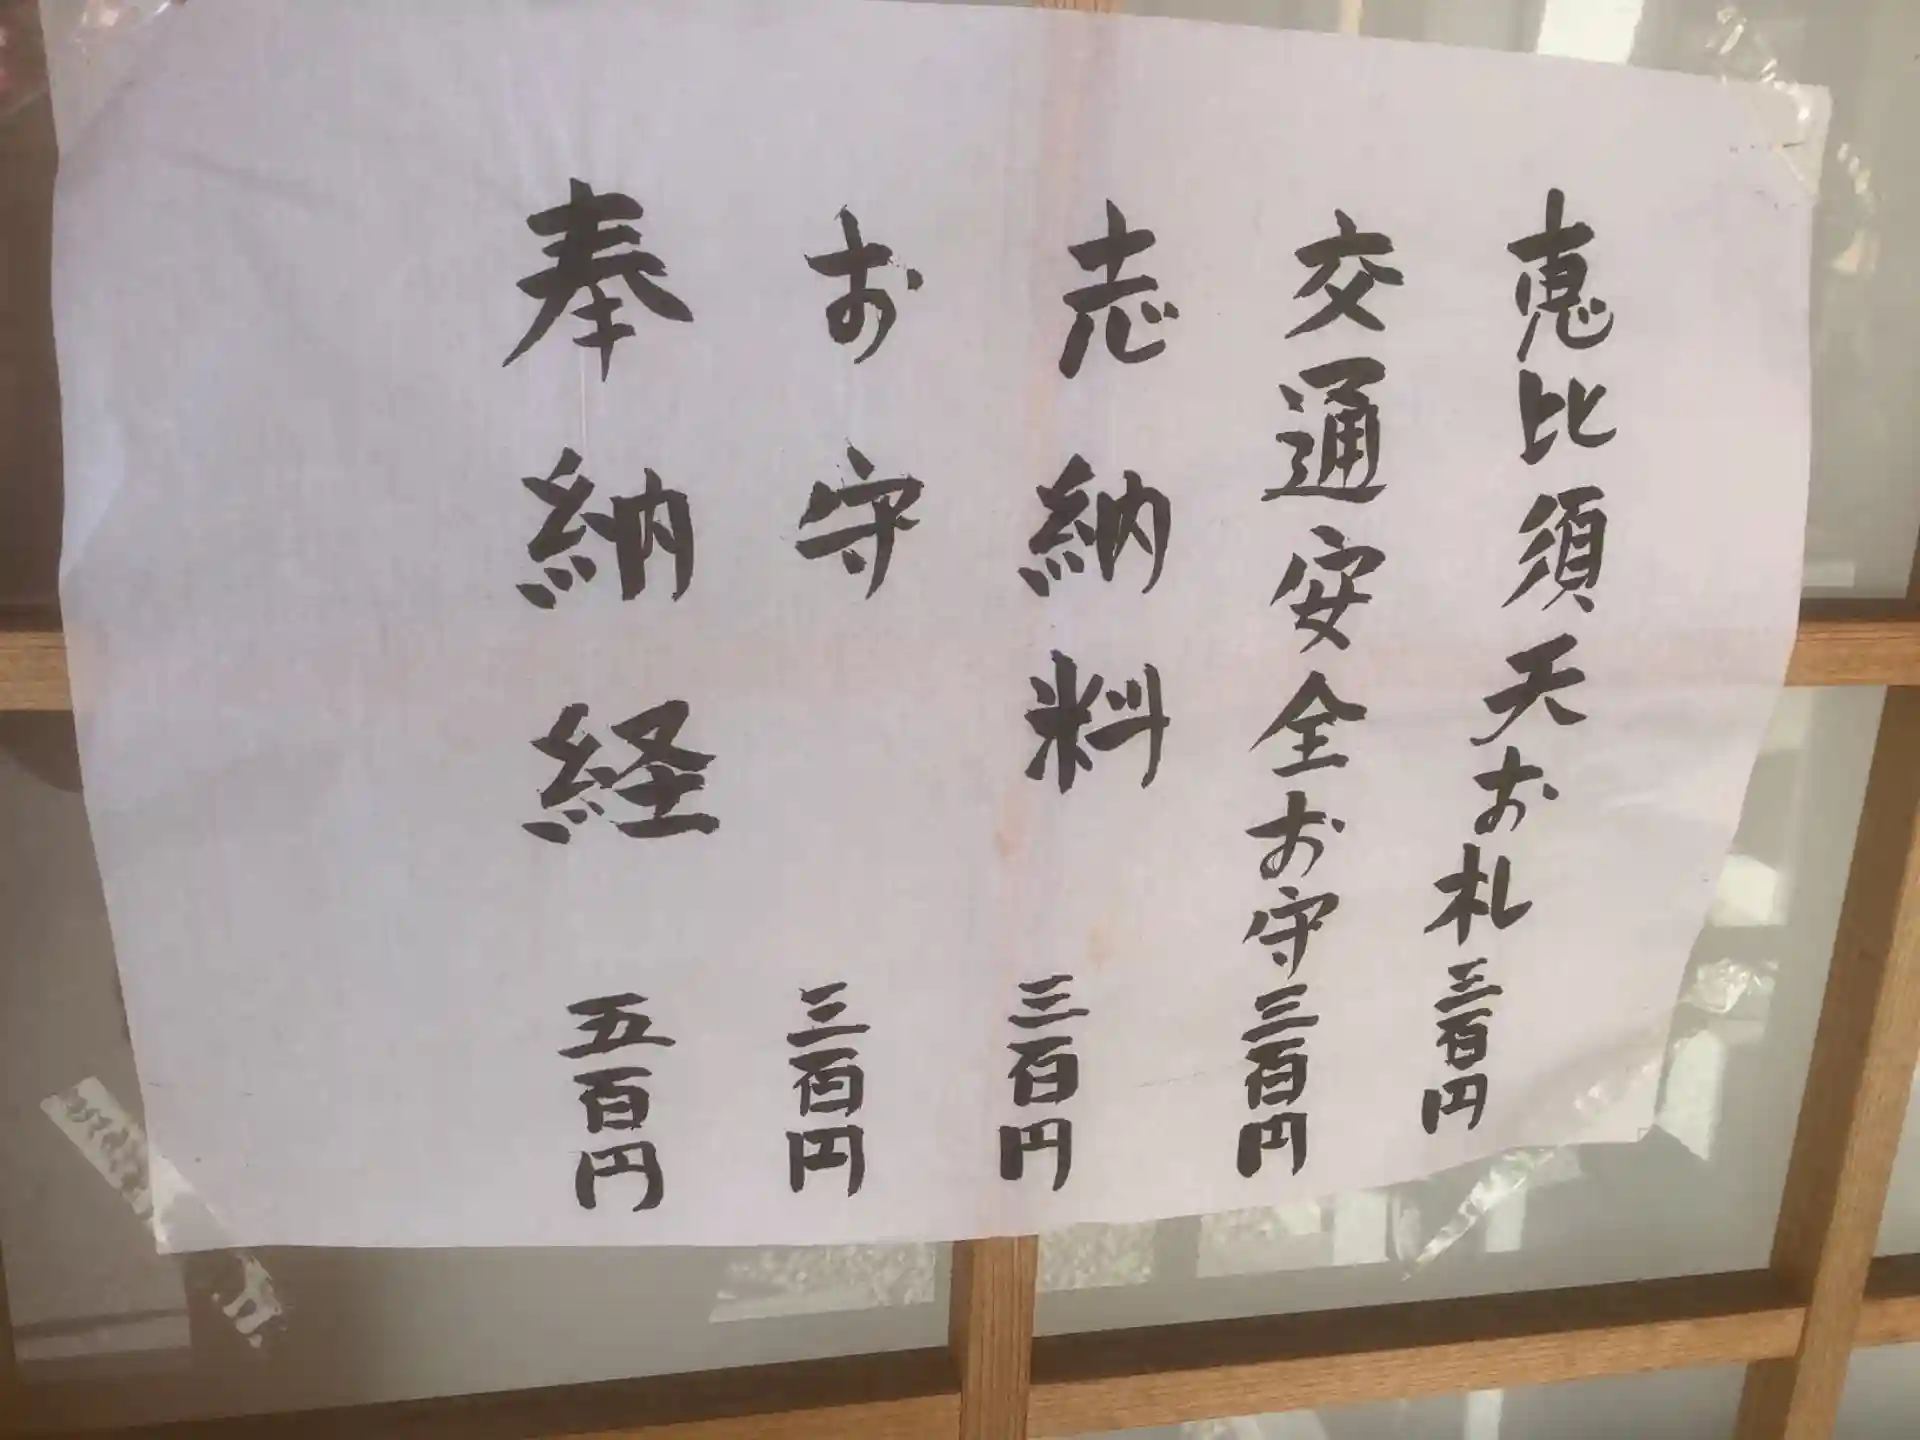 恵比須天お札三百円
交通安全お守三百円
志納料 三百円
お守 三百円
奉納経 五百円